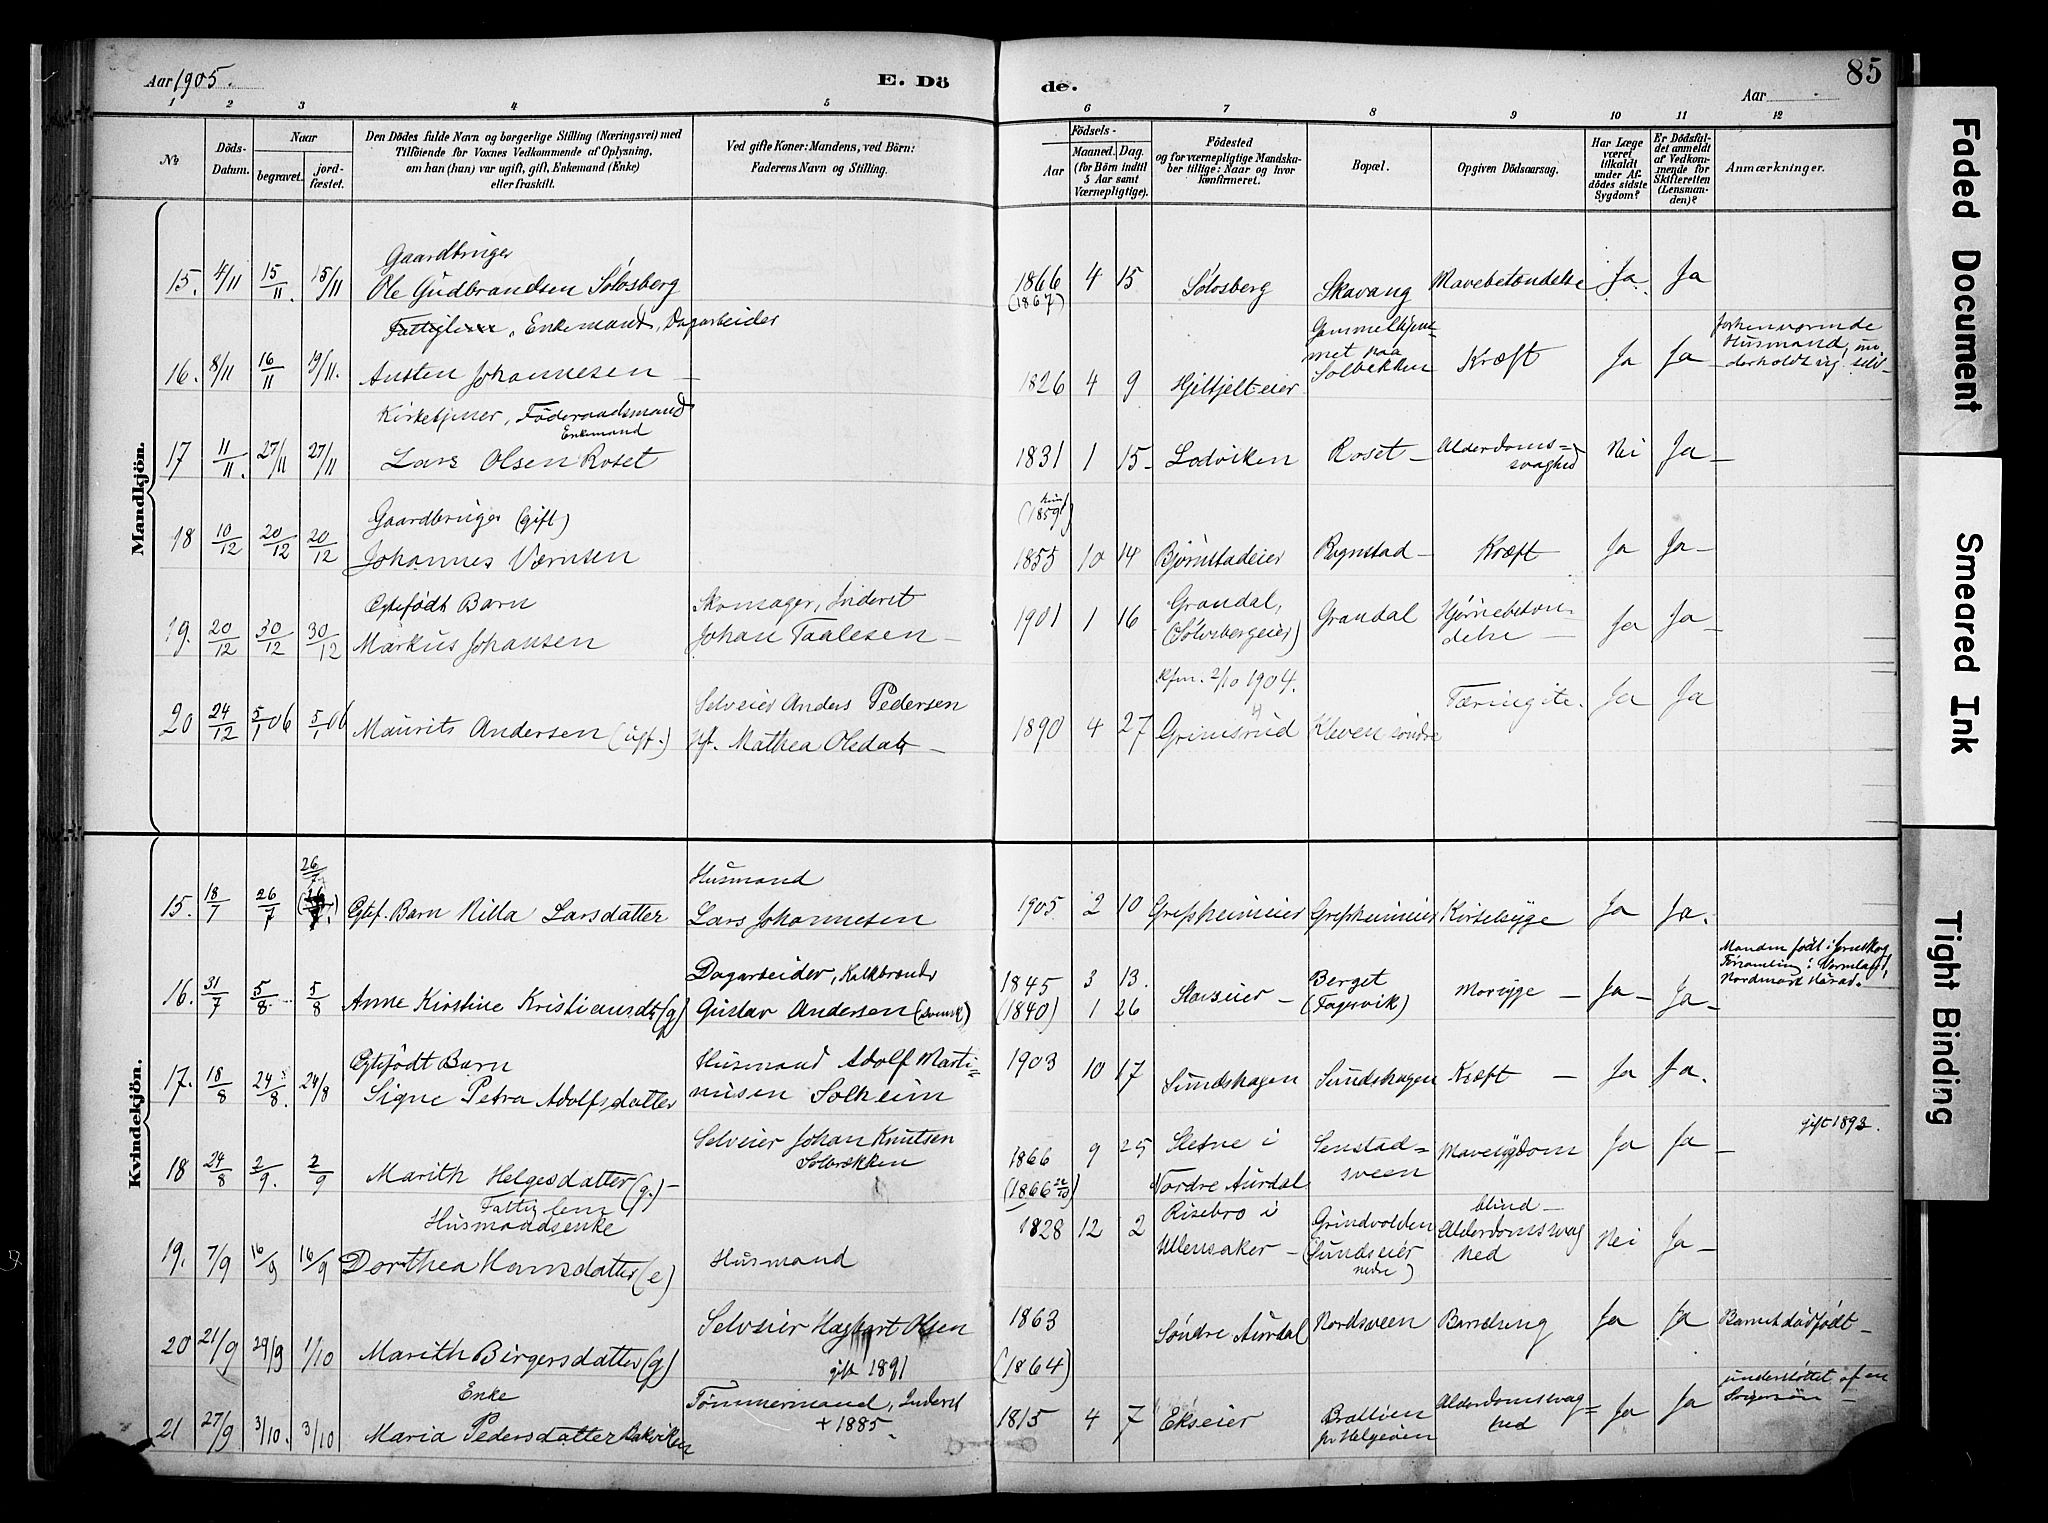 Aar 1905.
E. Dö
de.
Aar
85
1 2 3 4 5 6 7 8 9 10 11 12
No
Döds-
Datum.
Naar
begravet.
jord-
fæstet.
Den Dödes fulde Navn og borgerlige Stilling (Næringsvei) med
Tilföiende for Voxnes Vedkommende af Oplysning,
om han (hun) var ugift, gift, Enkemand (Enke)
eller fraskilt.
Ved gifte Koner: Mandens, ved Börn:
Faderens Navn og Stilling.
Födsels-
Aar
Maaned. Dag.
(for Börn indtil
5 Aar samt
Værnepligtige).
Födested
og for værnepligtige Mandska-
ber tillige: Naar og hvor
konfirmeret.
Bopæl.
Opgiven Dödsaarsag.
Har Læge
været
tilkaldt
under Af-
dödes sidste
Sygdom?
Er Dödsfal-
det anmeldt
af Vedkom-
mende for
Skifteretten
(Lensman-
den)?
Anmærkninger.
Mandkjön.
Gaardbruger
15. 4/11 15/11. 15/11 Ole Gudbrandsen Sölosberg 1866 4 15 Sölosberg Skavang Mavebetændelse Ja Ja
(1867)
Fattiglem, Enkemand, Dagarbeider
16. 8/11 16/11 19/11. Austen Johannesen 1826 4 9 Hjeltjelteier Gammelhjem-
met paa
Solbekken Kræft Ja Ja forhenværende
Husmand, un-
derholdt sig selv
Kirketjener, Föderaadsmand
Enkemand
17 11/11. 27/11 27/11 Lars Olsen Roset 1831 1 15 Lodviken Roset Alderdoms=
svaghed Nei Ja
(1859)
Gaardbruger (gift)
18 10/12 20/12 20/12 Johannes Værnsen 1855 10 14 Björnstadeier Rognstad Kræft Ja Ja
Egtefödt Barn
Skomager, Inderst
19. 20/12 30/12 30/12 Markus Johansen Johan Taalesen 1901 1 16 Grandal,
(Sölvsbergeier) Grandal Hjernebetæn-
delse Ja Ja
Kfm. 2/10 1904.
20 24/12 5/1 06 5/1 06 Maurits Andersen (ugt.) Selveier Anders Pedersen
Mathea Olsdatr 1890 4 27 Grimsrud Kleven söndre Tæringste. Ja Ja
Kvindekjön.
26/7
Husmand
15. 18/7 26/7 Egtef. Barn Nilla Larsdatter Lars Johannesen 1905 2 10 Grefsheimeier Grefsheimeier Kirtelsyge Ja Ja.
Dagarbeider, Kalkbrænder
16. 31/7 5/8 5/8 Anne Kirstine Kristiansdtr (g) Gustav Andersen (svensk) 1845 3 13.
(1840) 1 26 Stavseier Berget
(Fagervik) Morsyge Ja Ja
Manden födt i Jernskog
Församling i Vermland,
Nordmark Härad.
Egtefödt Barn
17. 18/8 24/8. 24/8 Signe Petra Adolfsdatter Husmand Adolf Marti=
nusen Solheim 1903 10 17 Sundshagen Sundshagen Kræft Ja Ja.
Selveier Johan Knutsen
Solbrækken
18 24/8 2/9. 2/9 Marith Helgesdatter (g.) 1866 9 25
(1866 26/10) Sletne i
Nordre Aurdal Senstad=
sveen Mavesygdom Ja Ja gift 1893.
Fattiglem
Husmandsenke
19. 7/9 16/9 16/9 Dorthea Hansdatter (e) Husmand 1828 12 2 Risebro i
Ullensaker Grindvolden
(Sundseier
nedre) blind
Alderdomssvag
hed Nei Ja
20 21/9 29/9 1/10 Marith Birgersdatter (g) Selveier Hagbart Olsen
gift 1891 1863
(1864) Söndre Aurdal Nordsveen Barselseng Ja Ja Barnet dödfödt
Enke
21 27/9 3/10. 3/10 Maria Pedersdatter Bakviken Tömmermand, Inderst
+ 1885. 1815 4 7 Ekseier Bratlien
pr Helgeöen Alderdomssvag=
hed Ja Ja understöttet af en
Faded Document
Smeared Ink
Tight Binding